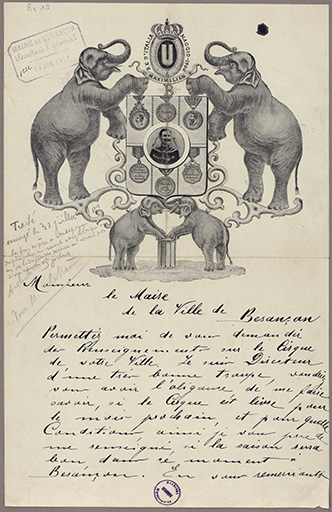 MAIRIE DE BESANÇON
Secrétariat général
RE D'ITALIA
MAGGIO 1900
U
MAXIMILIAN
Monsieur
le Maire
de la Ville de Besançon
Permettez moi de vous demander
des Renseignements sur le Cirque
de votre Ville je suis Directeur
d'une tres bonne troupe, voudriez
vous avoir l'obligance de me faire
savoir, si le Cirque est libre pour
le mois prochain et pour quelle
Conditions, ainsi je vous prie de
me renseigné, si la saison sera
bon dans ce moment à
Besançon. En vous remerciants